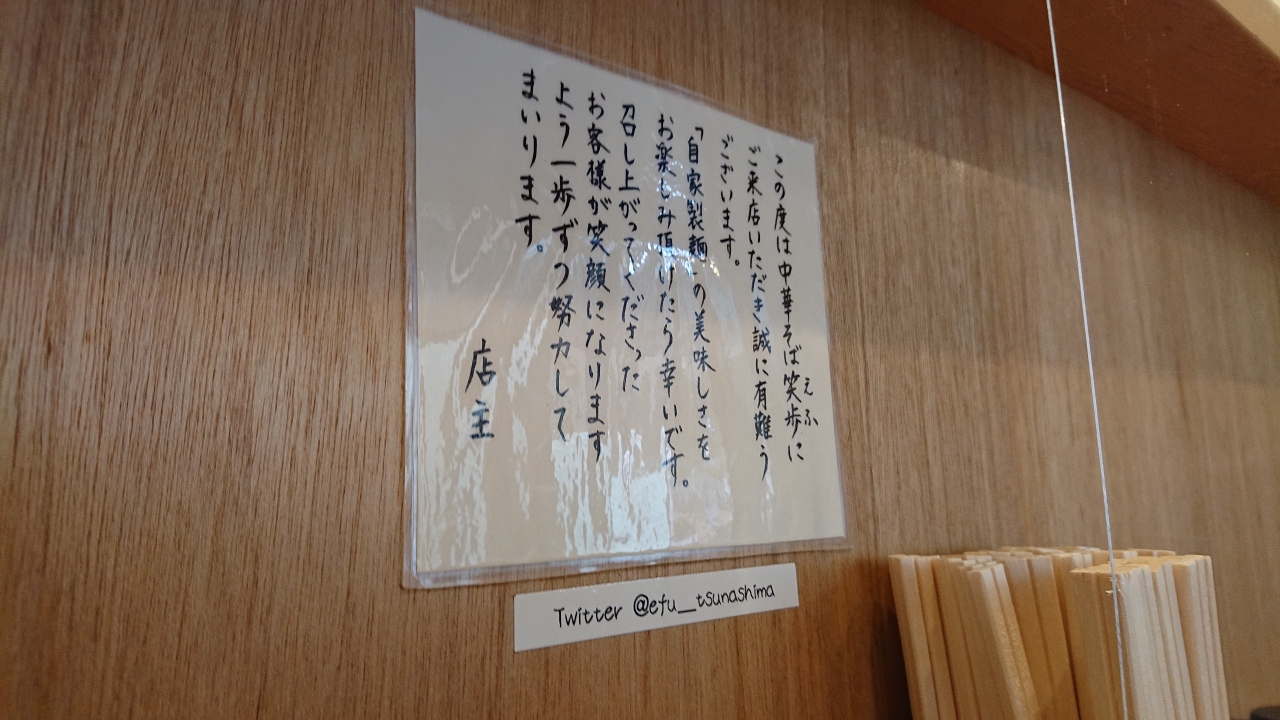 この度は中華そば笑歩に
えふ
ご来店いただき誠に有難う
ございます。
「自家製麺」の美味しさを
お楽しみ頂けたら幸いです。
召し上がってくださった
お客様が笑顔になります
よう一歩ずつ努力して
まいります。
店主
Twitter @efu__tsunashima